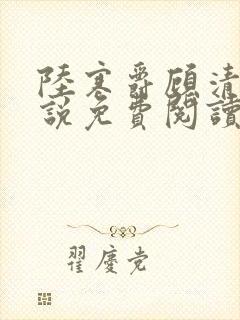 陸寒爵顧清
說免費閱讀
翟慶党